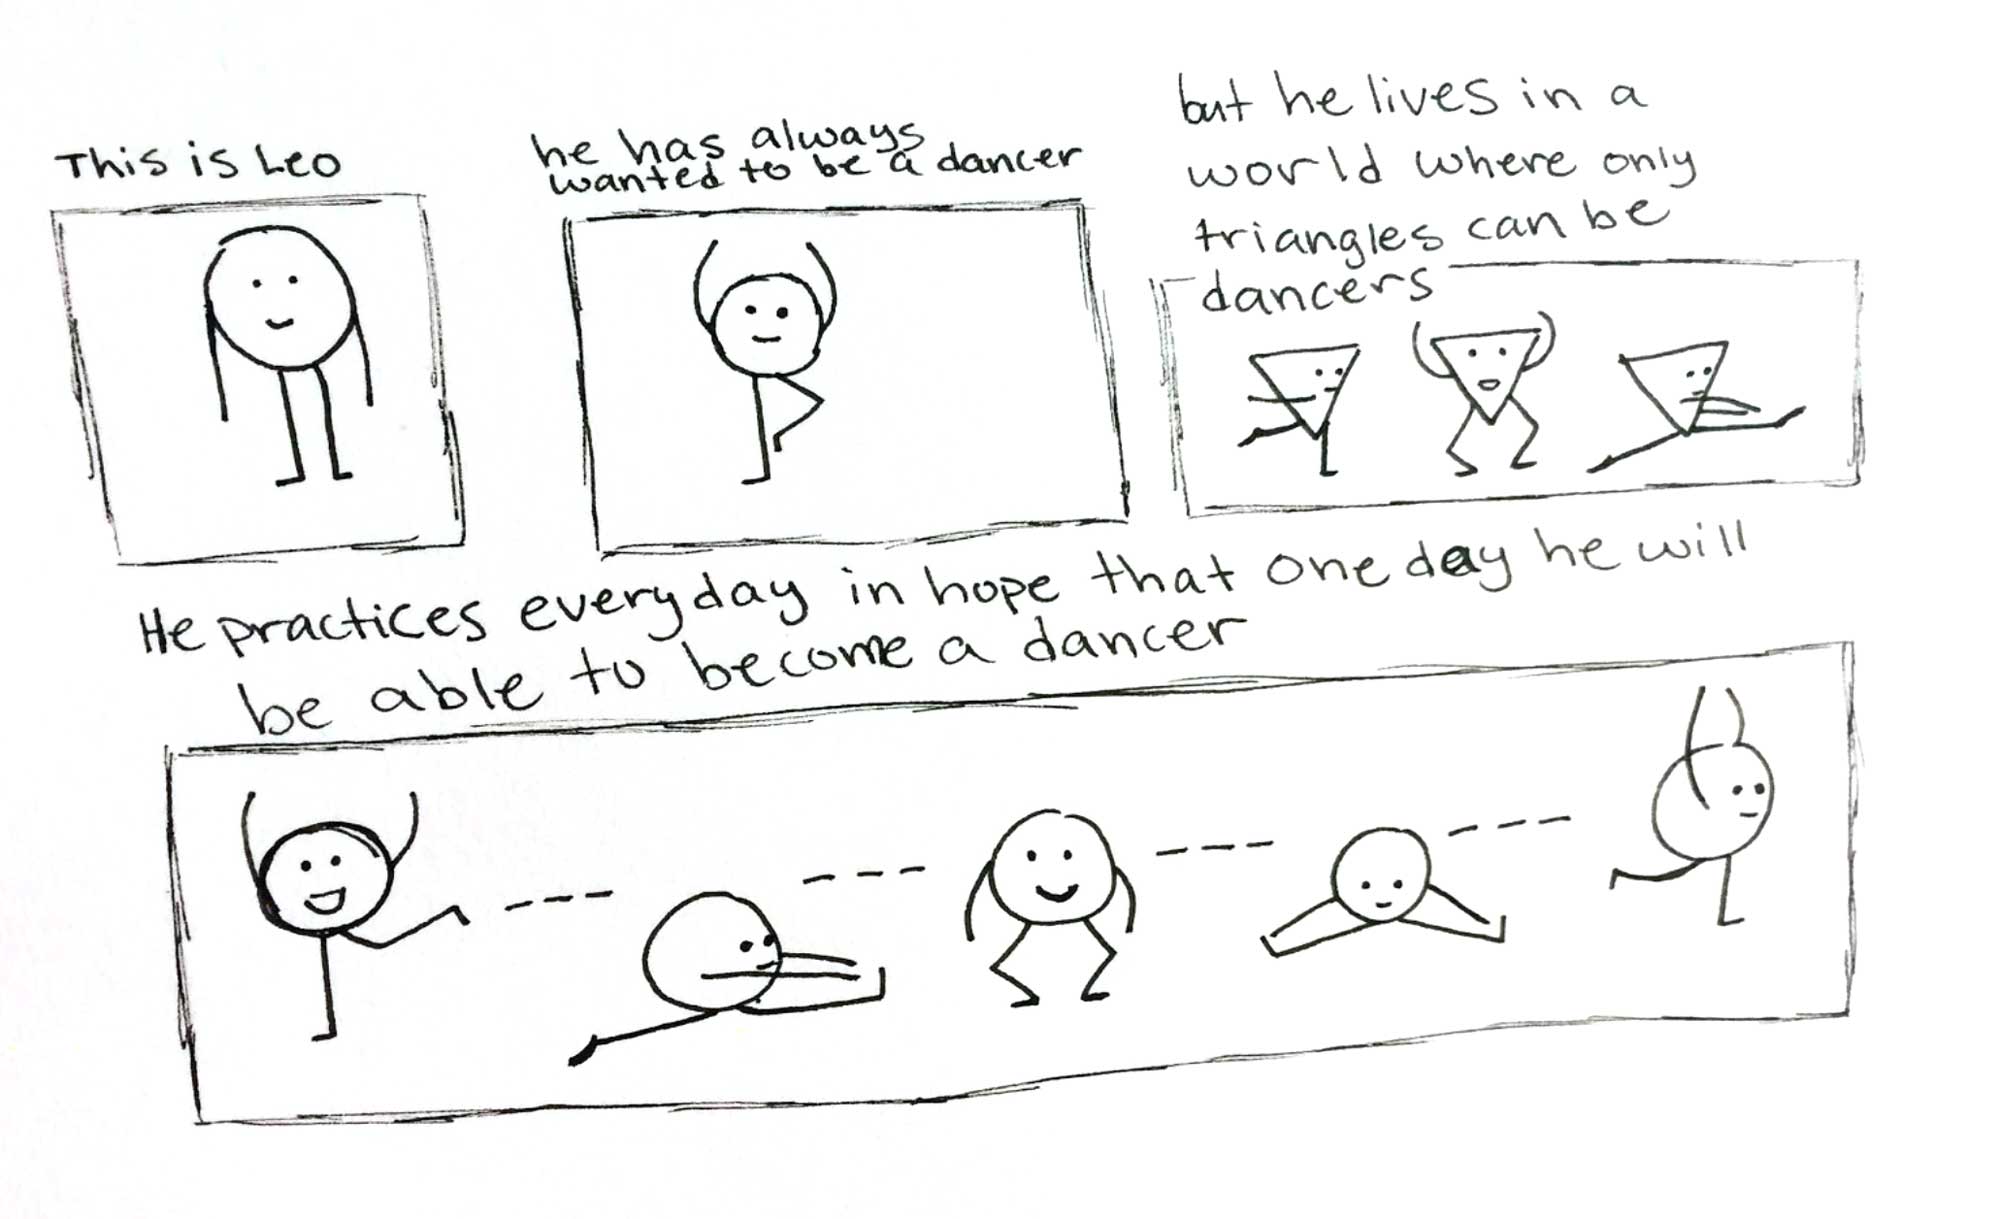 This is Leo
he has always
wanted to be a dancer
but he lives in a
world where only
triangles can be
dancers
He practices everyday in hope that one day he will
be able to become a dancer